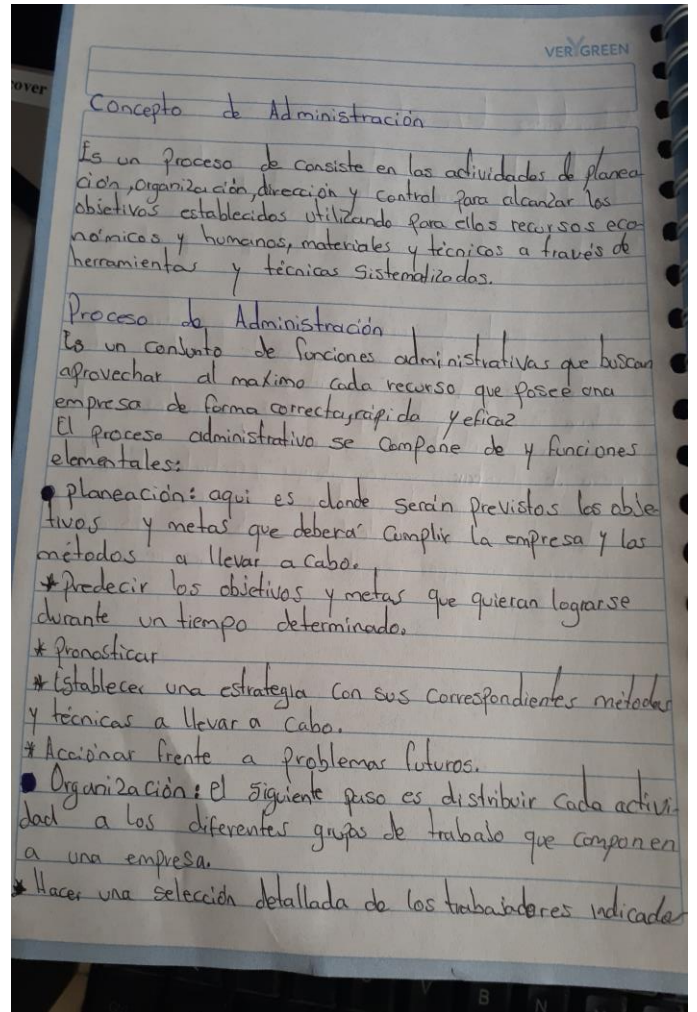 VERYGREEN
over
Concepto de Administración
Es un Proceso de consiste en las actividades de planea
ción, organización, dirección y control para alcanzar los
objetivos establecidos utilizando para ellos recursos eco-
nómicos y humanos, materiales y técnicos a través de
herramientas y técnicas sistematizadas.
Proceso de Administración
Es un conjunto de funciones administrativas que buscan
aprovechar al maximo cada recurso que posee una
empresa de forma correcta, rápida y eficaz
El proceso administrativo se compone de y funciones
elementales:
• planeación: aqui es donde serán previstos los obje-
tivos y metas que deberá cumplir la empresa y las
métodos a llevar a cabo.
* Predecir los objetivos y metas que quieran lograrse
durante un tiempo determinado.
* Pronosticar
* Establecer una estrategia con sus correspondientes métodos
y técnicas a llevar a cabo.
* Accionar frente a problemas futuros.
• Organización: el siguiente paso es distribuir cada activi-
dad a los diferentes grupos de trabajo que componen
a una empresa.
* Hacer una selección detallada de los trabajadores indicados
B N